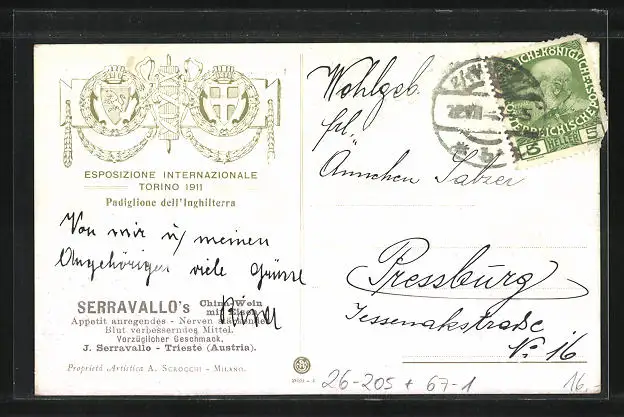 ESPOSIZIONE INTERNAZIONALE
TORINO 1911
Padiglione dell'Inghilterra
Von mir u/ meinen
Angehörigen viele Grüsse
SERRAVALLO's China-Wein
mit Eisen
Appetit anregendes - Nerven stärkendes
Blut verbesserndes Mittel.
Vorzüglicher Geschmack.
J. Serravallo - Trieste (Austria).
Proprietà Artistica A. SCROCCHI - MILANO.
Wohlgeb.
Frl.
Ännchen Salzer
Pressburg
Jessenakstraße
No 16
5 HELLER 5
26-205 + 67-1
16,-